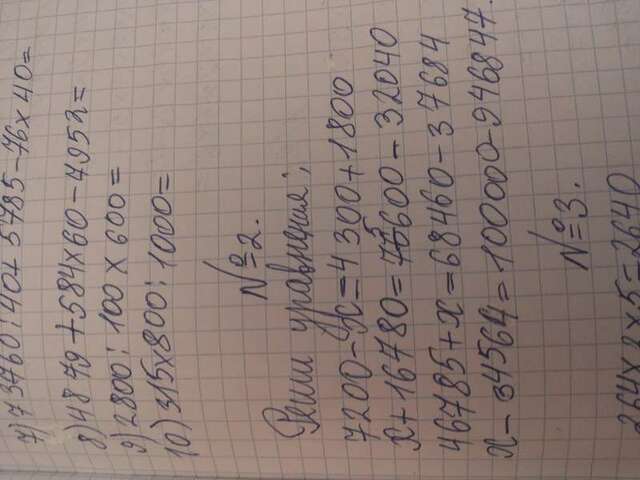 7) 73760:40+5785-76x40=
8) 4879+584x60-7952=
9) 2800:100x600=
10) 315x800:1000=
№2.
Реши уравнения;
7200-x=4300+1800
x+16780=75600-32040
46785+x=68460-37684
x-34564=100000-946847.
№3.
264x2x5=2640